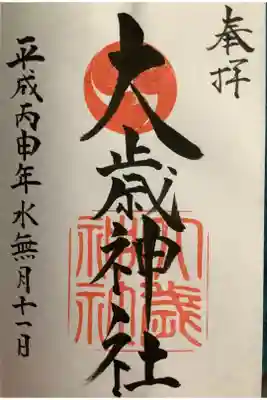 奉拝
大歳神社
平成丙申年水無月十一日